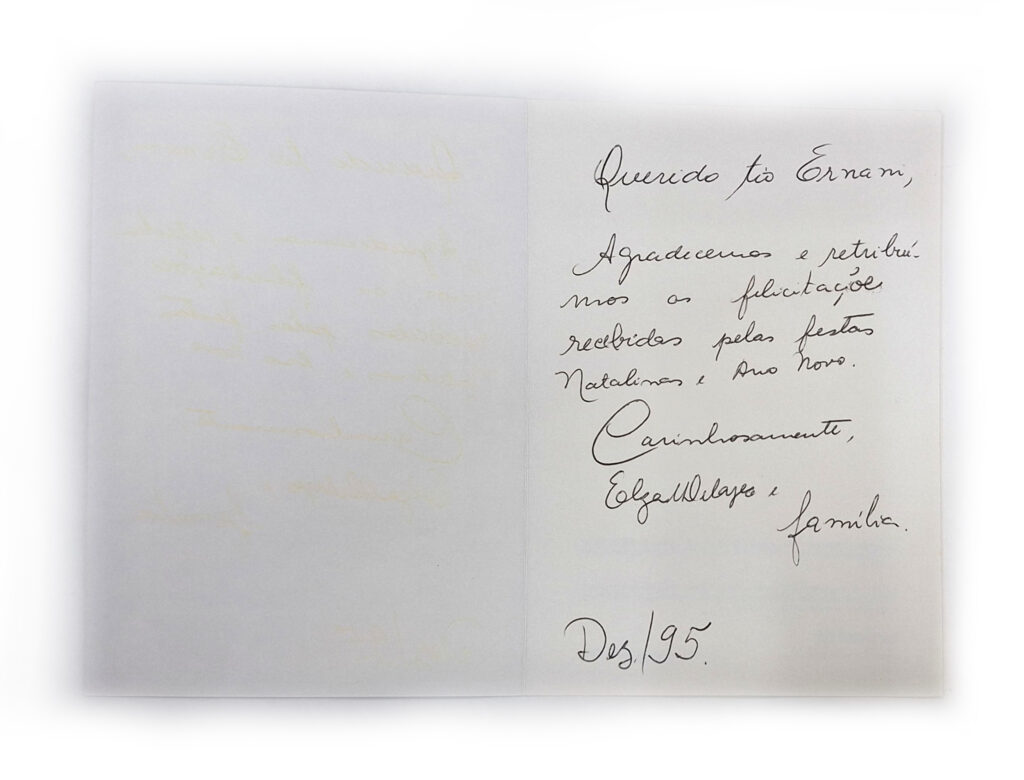 Querido tio Ernani,
Agradecemos e retribuí-
mos as felicitações
recebidas pelas festas
Natalinas e Ano Novo.
Carinhosamente,
e
família.
Dez./95.